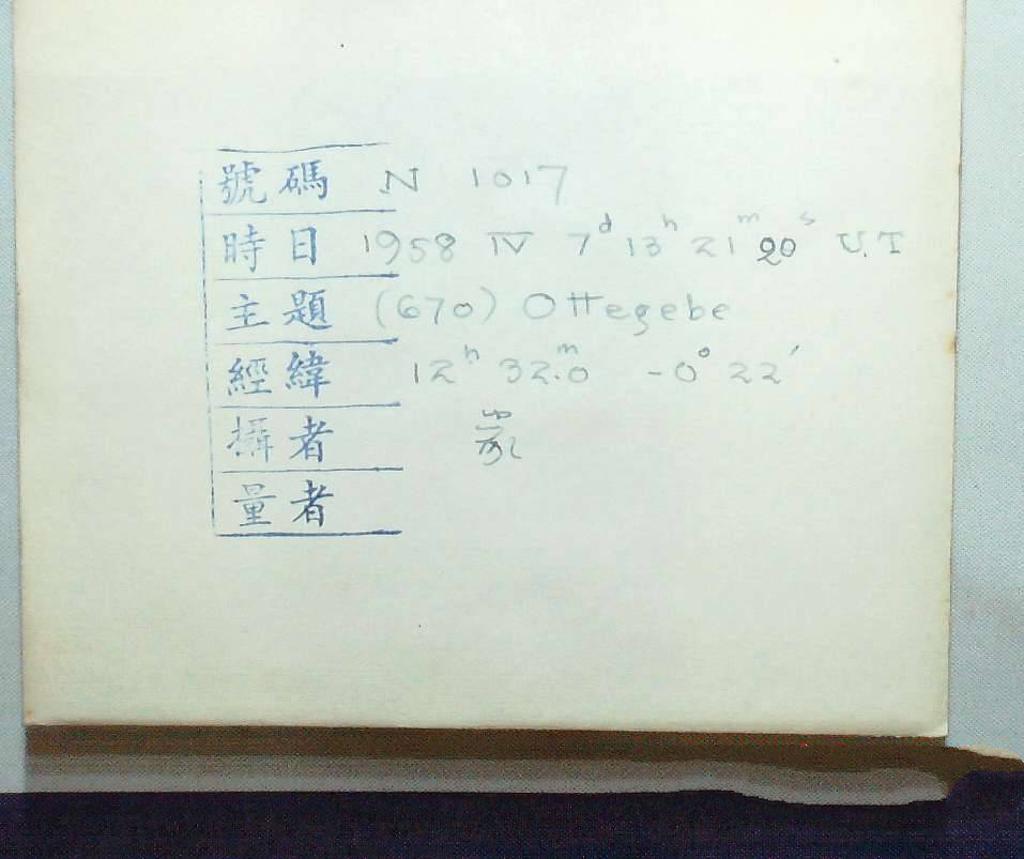 號碼 N 1017
時日 1958 IV 7d 13h 21m 20s U.T
主題 (670) Ottegebe
經緯 12h 32m.0 -0° 22′
攝者
量者